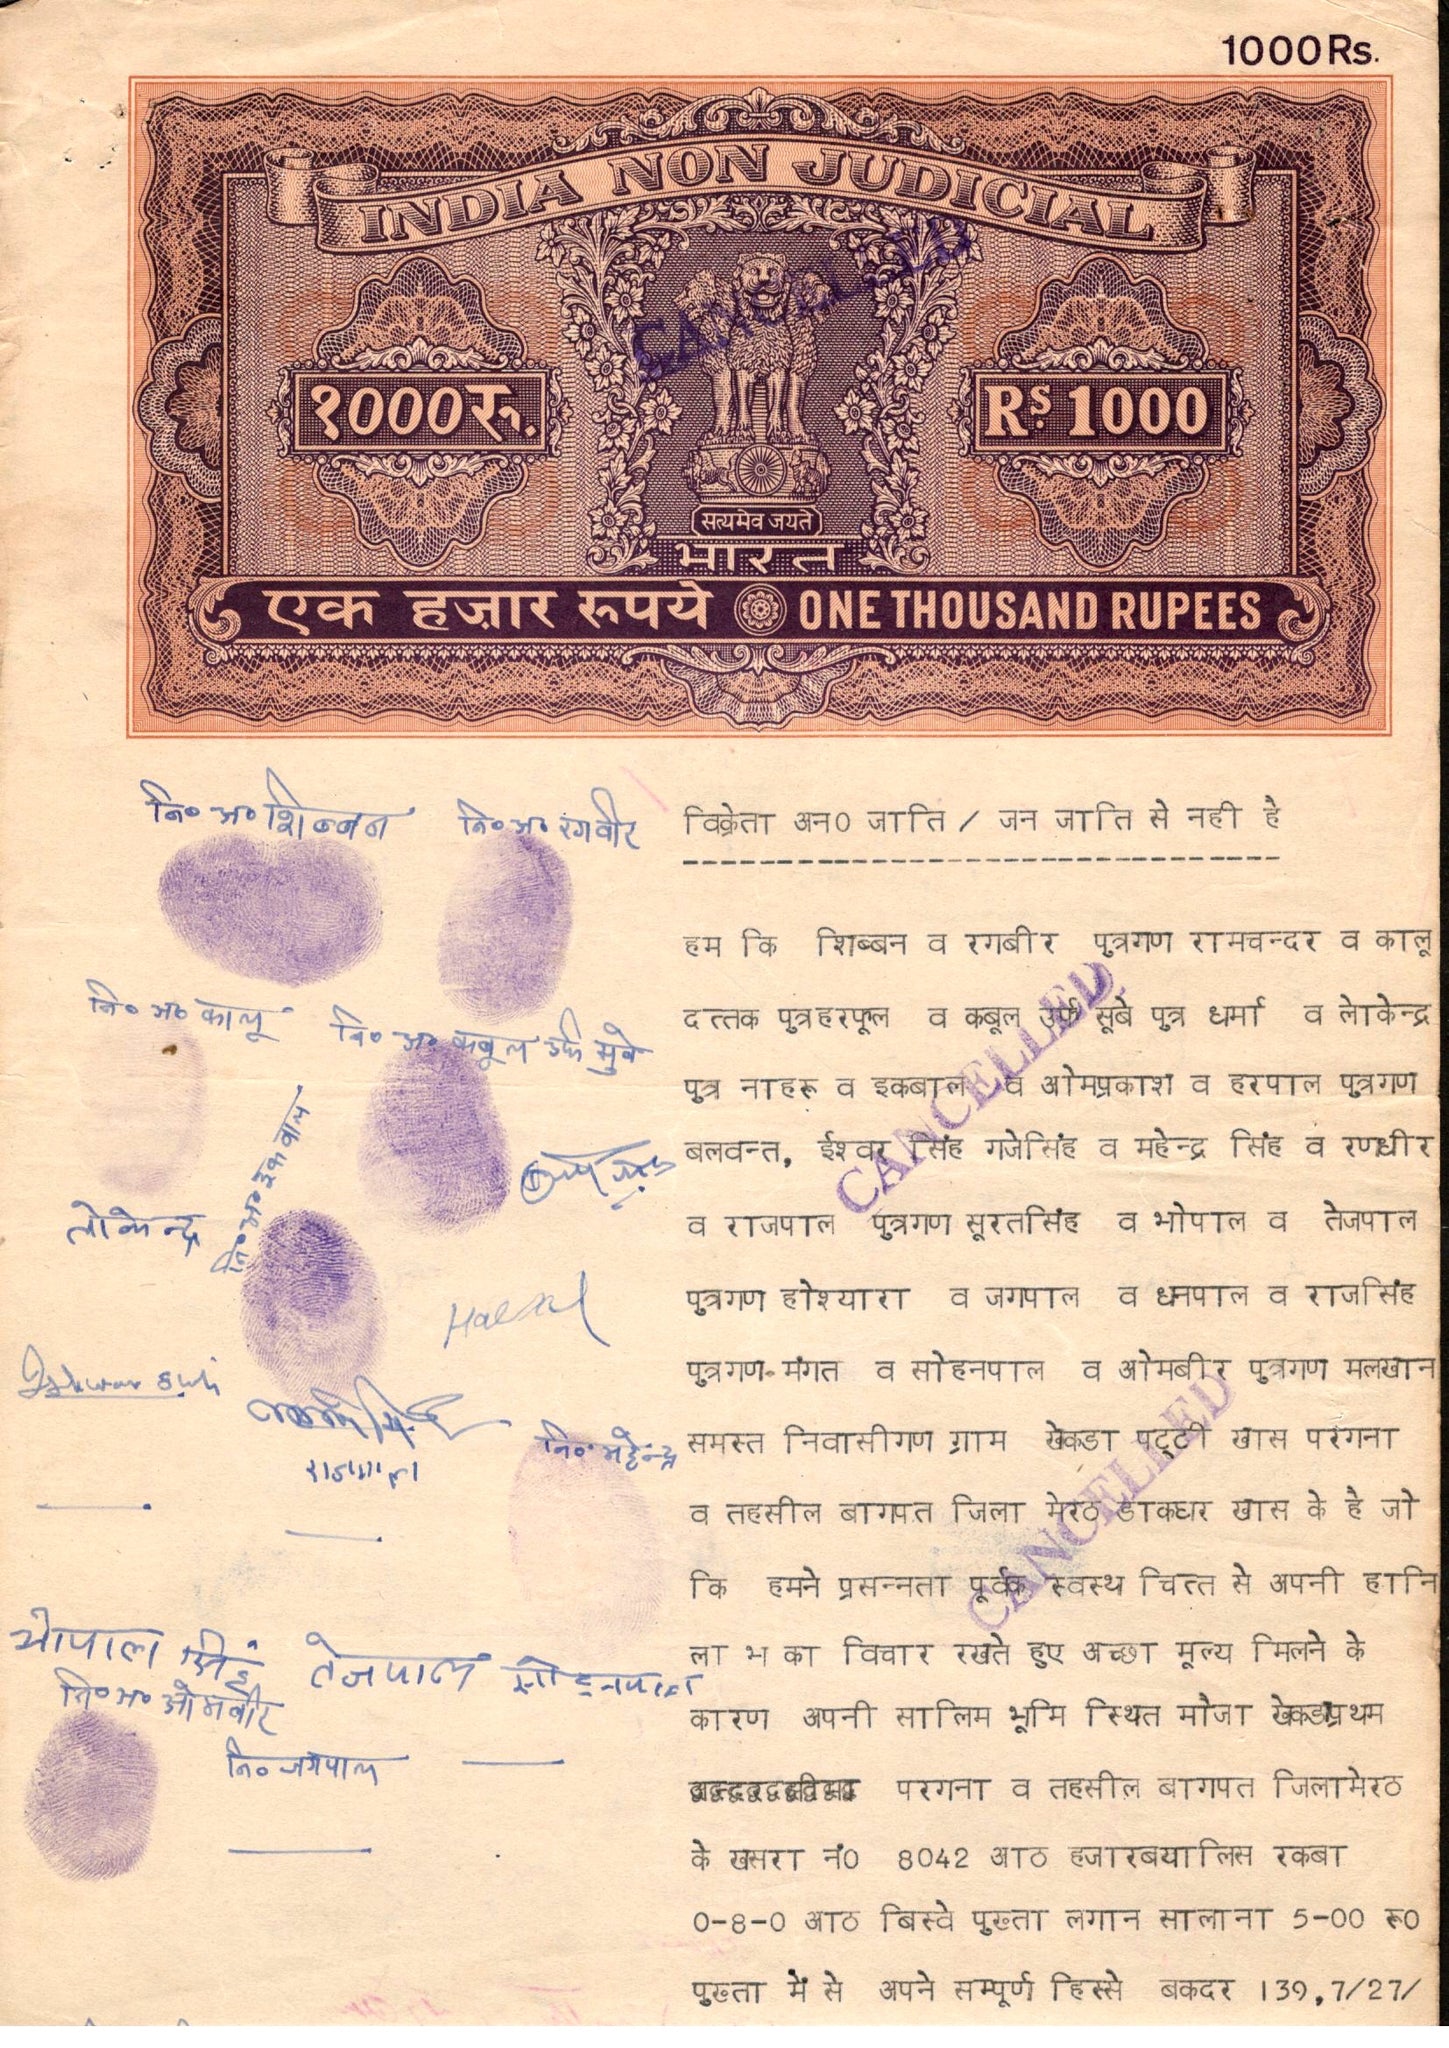 1000Rs.
INDIA NON JUDICIAL
CANCELLED
१000रु.
Rs. 1000
सत्यमेव जयते
भारत
एक हज़ार रुपये ONE THOUSAND RUPEES
नि० अ० शिब्बन
नि० अ० रंगवीर
नि० अ० कालू
नि० अ० कबूल उर्फ सुबे
नि० अ० इकबाल
लोकेन्द्र
राजपाल
नि० महेन्द्र
भोपाल सिंह
तेजपाल
सोहनपाल
नि० अ० ओमवीर
नि० जगपाल
विक्रेता अन0 जाति / जन जाति से नही है
हम कि शिब्बन व रगबीर पुत्रगण रामचन्दर व कालू
दत्तक पुत्रहरफूल व कबूल उर्फ सूबे पुत्र धर्मा व लोकेन्द्र
पुत्र नाहरू व इकबाल व ओमप्रकाश व हरपाल पुत्रगण
बलवन्त, ईश्वर सिंह गजेसिंह व महेन्द्र सिंह व रणधीर
व राजपाल पुत्रगण सूरतसिंह व भोपाल व तेजपाल
पुत्रगण होश्यारा व जगपाल व धनपाल व राजसिंह
पुत्रगण मंगत व सोहनपाल व ओमबीर पुत्रगण मलखान
समस्त निवासीगण ग्राम खेकडा पट्टी खास परगना
व तहसील बागपत जिला मेरठ डाकघर खास के है जो
कि हमने प्रसन्नता पूर्वक स्वस्थ चित्त से अपनी हानि
लाभ का विचार रखते हुए अच्छा मूल्य मिलने के
कारण अपनी सालिम भूमि स्थित मोजा खेकडाप्रथम
परगना व तहसील बागपत जिलामेरठ
के खसरा नं0 8042 आठ हजारबयालिस रकबा
0-8-0 आठ बिस्वे पुख्ता लगान सालाना 5-00 रू0
पुख्ता में से अपने सम्पूर्ण हिस्से बकदर 139,7/27/
CANCELLED
CANCELLED